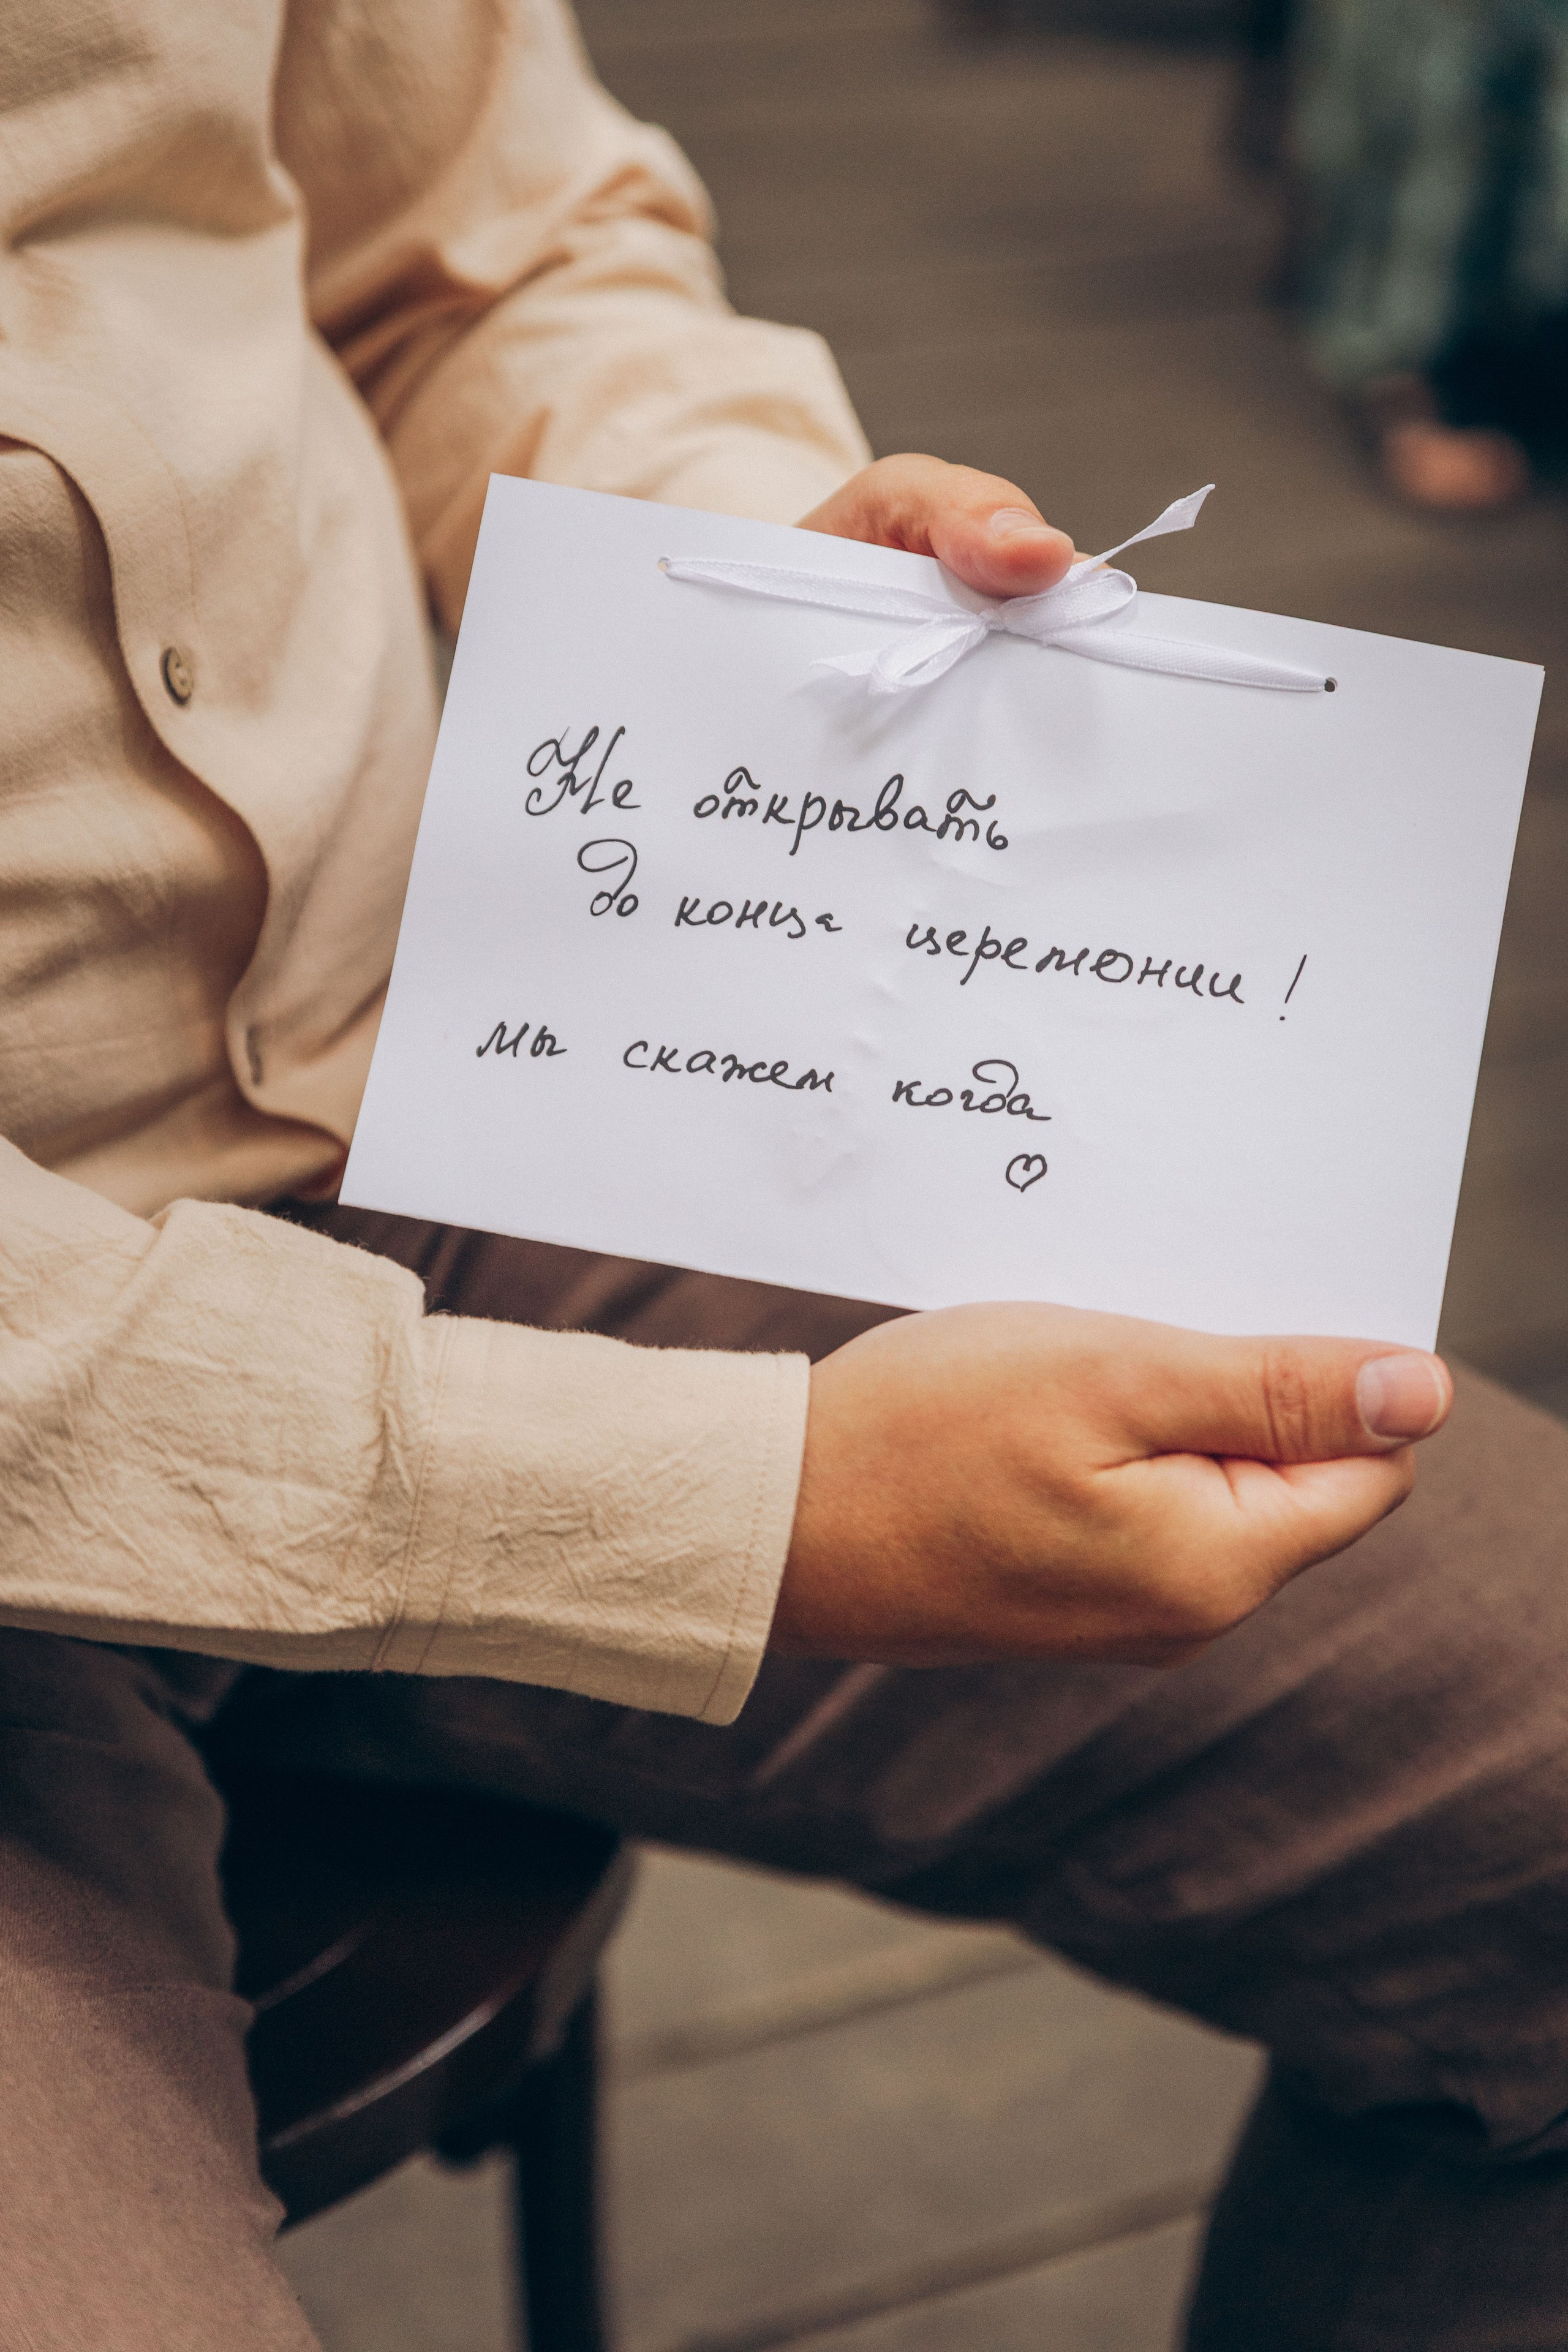 Не открывать
до конца церемонии!
мы скажем когда
♡